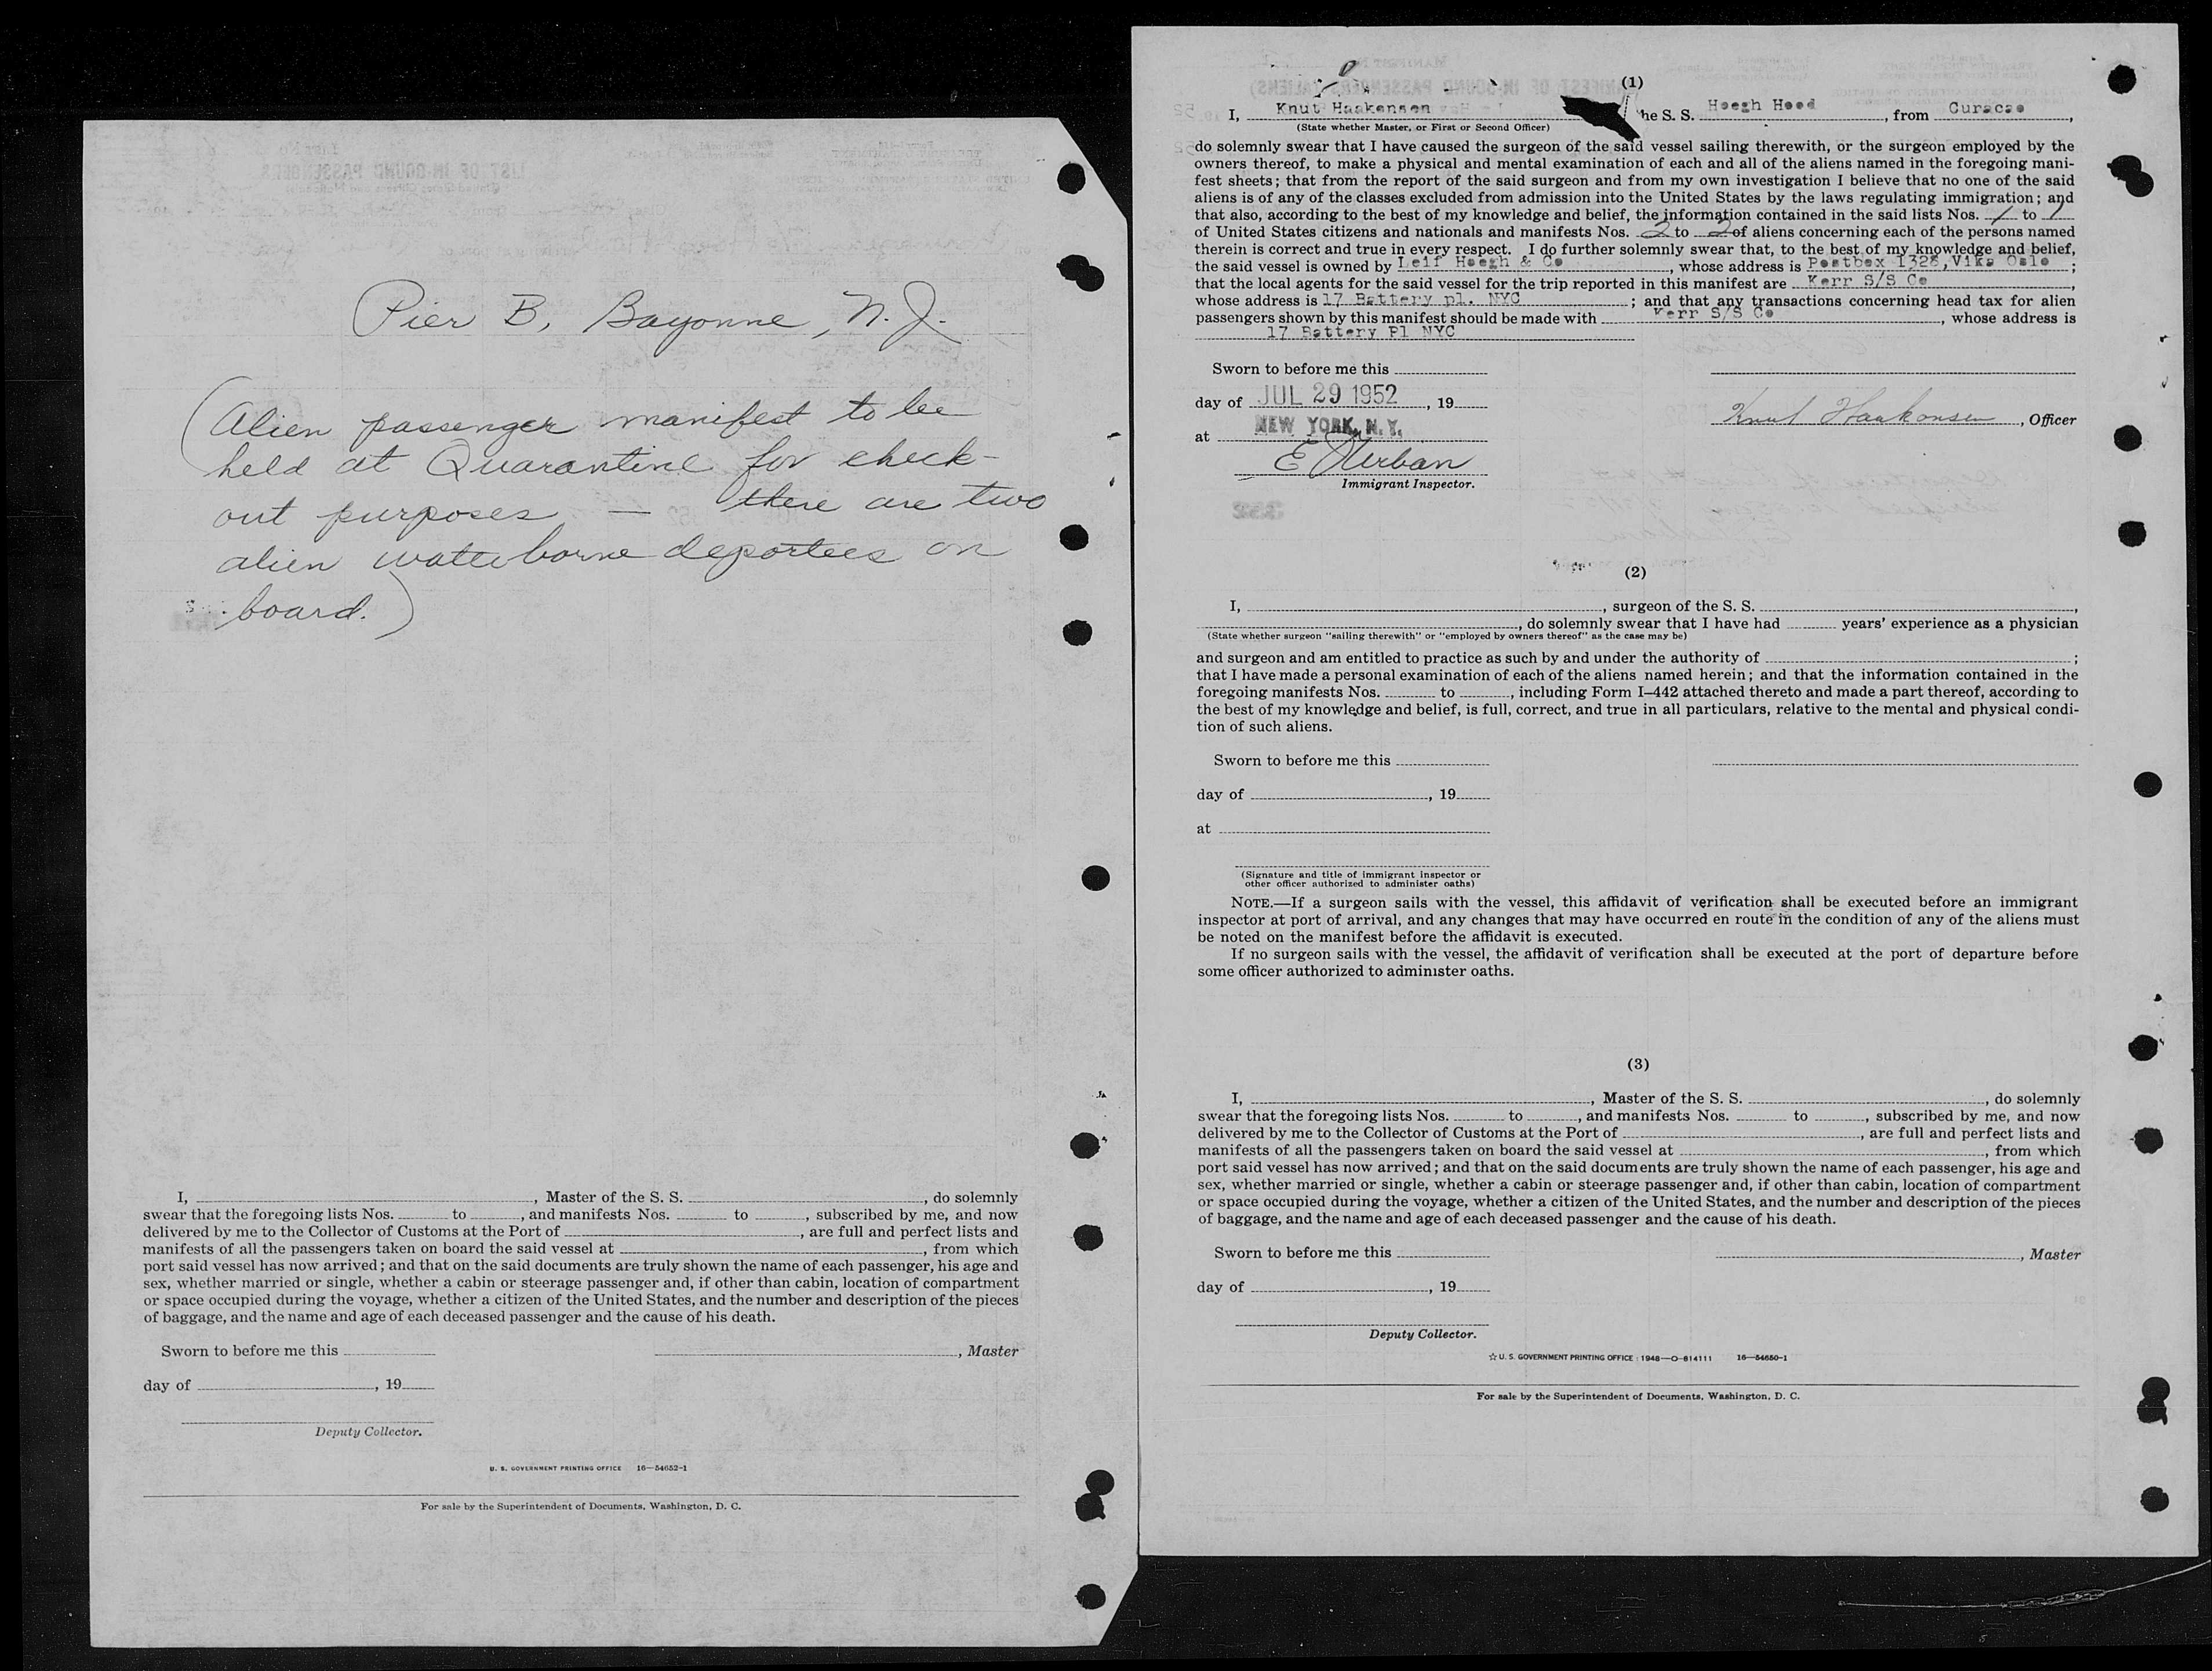 Pier B, Bayonne, N.J.
(Alien passenger manifest to be
held at Quarantine for check-
out purposes — there are two
alien watterborne deportees on
board.)
I, , Master of the S. S. , do solemnly
swear that the foregoing lists Nos. to , and manifests Nos. to , subscribed by me, and now
delivered by me to the Collector of Customs at the Port of , are full and perfect lists and
manifests of all the passengers taken on board the said vessel at , from which
port said vessel has now arrived; and that on the said documents are truly shown the name of each passenger, his age and
sex, whether married or single, whether a cabin or steerage passenger and, if other than cabin, location of compartment
or space occupied during the voyage, whether a citizen of the United States, and the number and description of the pieces
of baggage, and the name and age of each deceased passenger and the cause of his death.
Sworn to before me this
, Master
day of , 19
Deputy Collector.
U. S. GOVERNMENT PRINTING OFFICE 16—54652-1
For sale by the Superintendent of Documents, Washington, D. C.
(1)
I, Knut Haakonsen he S. S. Hoegh Hood , from Curacao ,
(State whether Master, or First or Second Officer)
do solemnly swear that I have caused the surgeon of the said vessel sailing therewith, or the surgeon employed by the
owners thereof, to make a physical and mental examination of each and all of the aliens named in the foregoing mani-
fest sheets; that from the report of the said surgeon and from my own investigation I believe that no one of the said
aliens is of any of the classes excluded from admission into the United States by the laws regulating immigration; and
that also, according to the best of my knowledge and belief, the information contained in the said lists Nos. 1 to 1
of United States citizens and nationals and manifests Nos. 2 to 2 of aliens concerning each of the persons named
therein is correct and true in every respect. I do further solemnly swear that, to the best of my knowledge and belief,
the said vessel is owned by Leif Hoegh & Co , whose address is Postbox 1328, Vika Oslo ;
that the local agents for the said vessel for the trip reported in this manifest are Kerr S/S Co ,
whose address is 17 Battery pl. NYC ; and that any transactions concerning head tax for alien
passengers shown by this manifest should be made with Kerr S/S Co , whose address is
17 Battery Pl NYC
Sworn to before me this
day of JUL 29 1952 , 19
Knut Haakonsen , Officer
at NEW YORK, N. Y.
E J Urban
Immigrant Inspector.
(2)
I, , surgeon of the S. S. ,
, do solemnly swear that I have had years' experience as a physician
(State whether surgeon "sailing therewith" or "employed by owners thereof" as the case may be)
and surgeon and am entitled to practice as such by and under the authority of ;
that I have made a personal examination of each of the aliens named herein; and that the information contained in the
foregoing manifests Nos. to , including Form I–442 attached thereto and made a part thereof, according to
the best of my knowledge and belief, is full, correct, and true in all particulars, relative to the mental and physical condi-
tion of such aliens.
Sworn to before me this
day of , 19
at
(Signature and title of immigrant inspector or
other officer authorized to administer oaths)
NOTE.—If a surgeon sails with the vessel, this affidavit of verification shall be executed before an immigrant
inspector at port of arrival, and any changes that may have occurred en route in the condition of any of the aliens must
be noted on the manifest before the affidavit is executed.
If no surgeon sails with the vessel, the affidavit of verification shall be executed at the port of departure before
some officer authorized to administer oaths.
(3)
I, , Master of the S. S. , do solemnly
swear that the foregoing lists Nos. to , and manifests Nos. to , subscribed by me, and now
delivered by me to the Collector of Customs at the Port of , are full and perfect lists and
manifests of all the passengers taken on board the said vessel at , from which
port said vessel has now arrived; and that on the said documents are truly shown the name of each passenger, his age and
sex, whether married or single, whether a cabin or steerage passenger and, if other than cabin, location of compartment
or space occupied during the voyage, whether a citizen of the United States, and the number and description of the pieces
of baggage, and the name and age of each deceased passenger and the cause of his death.
Sworn to before me this
, Master
day of , 19
Deputy Collector.
☆ U. S. GOVERNMENT PRINTING OFFICE : 1948—O-814111 16—54650-1
For sale by the Superintendent of Documents, Washington, D. C.